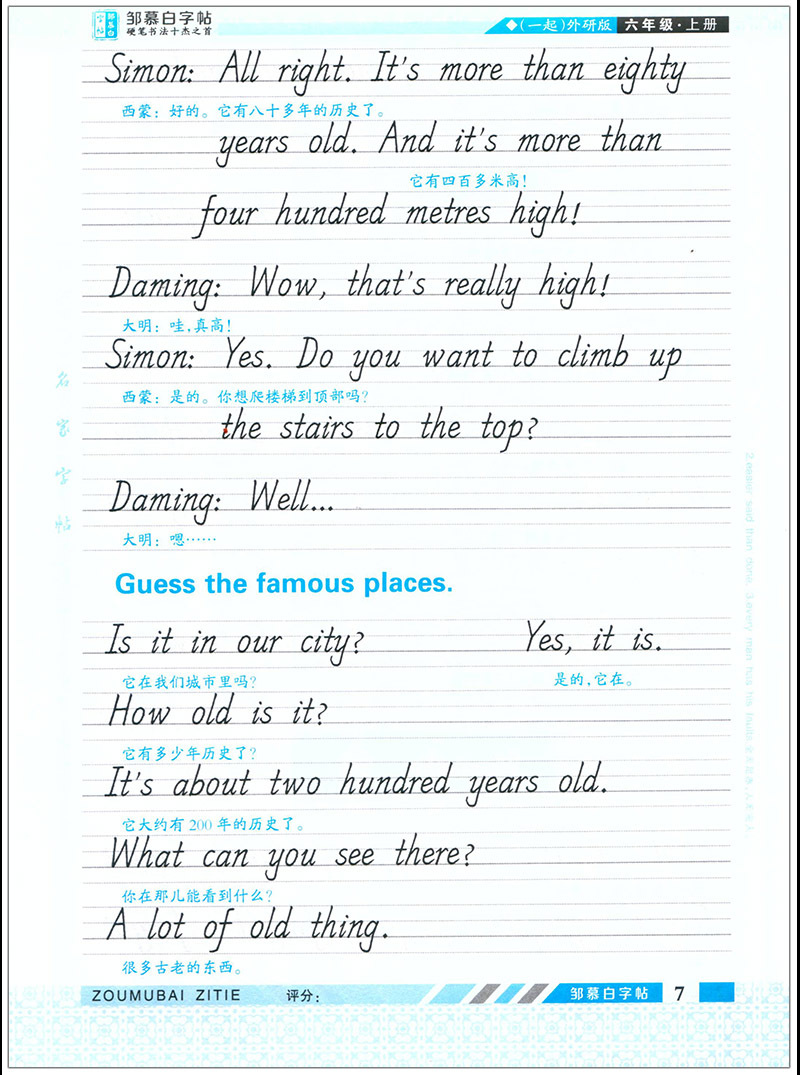 邹慕白字帖
硬笔书法十杰之首
◆(一起)外研版 六年级·上册
Simon: All right. It's more than eighty
西蒙：好的。它有八十多年的历史了。
years old. And it's more than
它有四百多米高！
four hundred metres high!
Daming: Wow, that's really high!
大明：哇，真高！
Simon: Yes. Do you want to climb up
西蒙：是的。你想爬楼梯到顶部吗？
the stairs to the top?
Daming: Well...
大明：嗯……
Guess the famous places.
Is it in our city? Yes, it is.
它在我们城市里吗？ 是的，它在。
How old is it?
它有多少年历史了？
It's about two hundred years old.
它大约有 200 年的历史了。
What can you see there?
你在那儿能看到什么？
A lot of old thing.
很多古老的东西。
名家字帖
2.easier said than done. 3.every man has his faults.
ZOUMUBAI ZITIE 评分：
邹慕白字帖 7